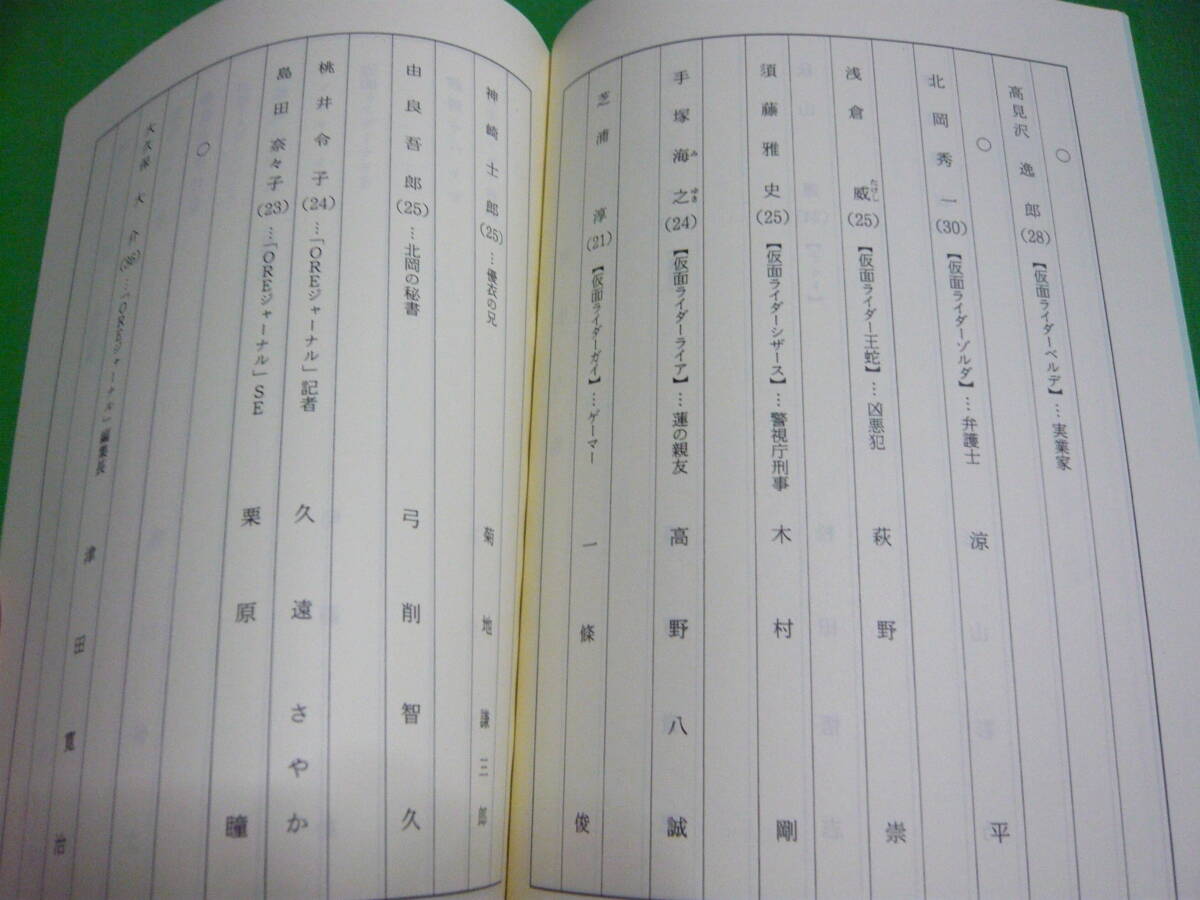 ○
高見沢逸郎(28)【仮面ライダーベルデ】…実業家
○
北岡秀一(30)【仮面ライダーゾルダ】…弁護士 涼平
浅倉威(25)【仮面ライダー王蛇】…凶悪犯 萩野崇
たけし
須藤雅史(25)【仮面ライダーシザース】…警視庁刑事 木村剛
手塚海之(24)【仮面ライダーライア】…蓮の親友 高野八誠
みゆき
芝浦淳(21)【仮面ライダーガイ】…ゲーマー 一條俊
神崎士郎(25)…優衣の兄 菊地謙三郎
由良吾郎(25)…北岡の秘書 弓削智久
桃井令子(24)…「OREジャーナル」記者 久遠さやか
島田奈々子(23)…「OREジャーナル」SE 栗原瞳
○
大久保大介(36)…「OREジャーナル」編集長 津田寛治